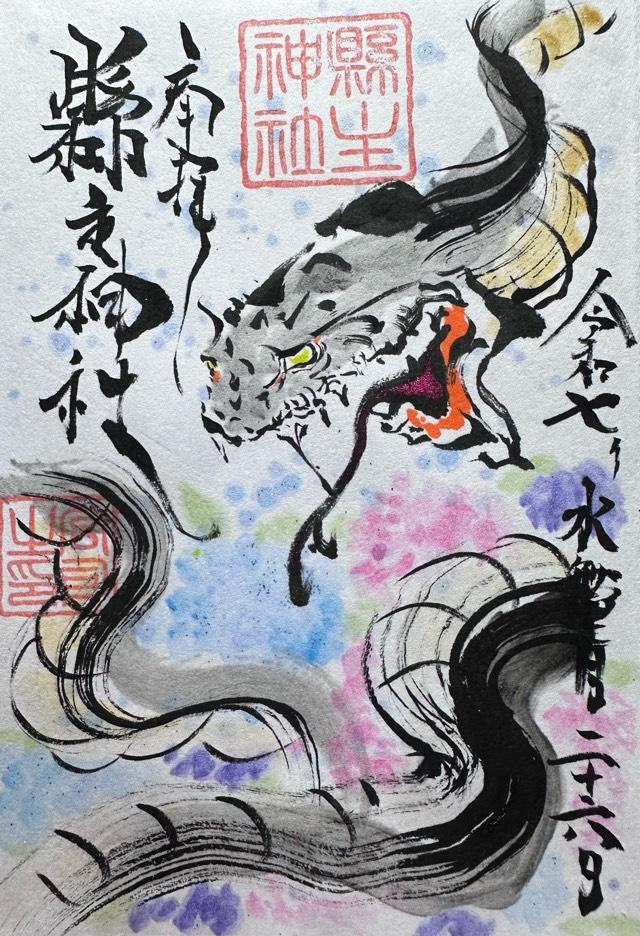 令和七年水無月二十六日
縣主
神社
奉拝
縣主神社